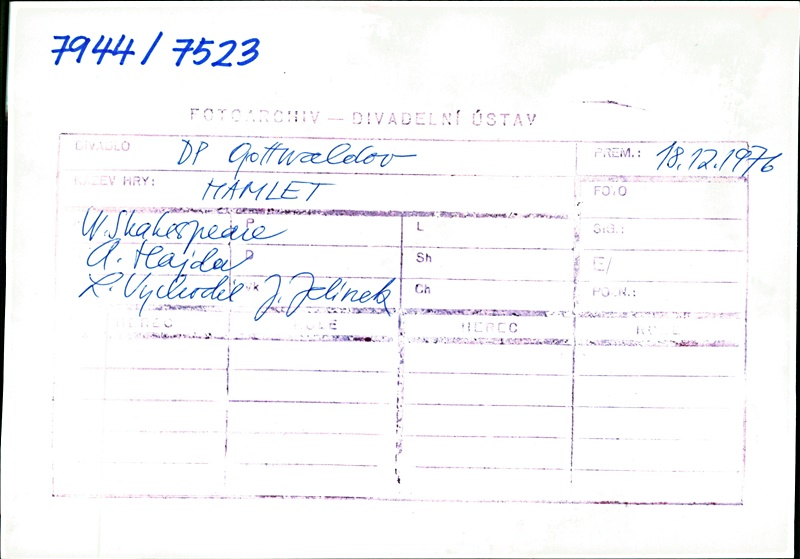 7944 / 7523
FOTOARCHIV — DIVADELNÍ ÚSTAV
DIVADLO DP Gottwaldov PREM.: 18.12.1976
NÁZEV HRY: HAMLET FOTO
W. Shakespeare P L SIG.:
A. Hajda D Sh E/
L. Vychodil k J. Jelínek Ch POJ.N.:
HEREC ROLE HEREC ROLE